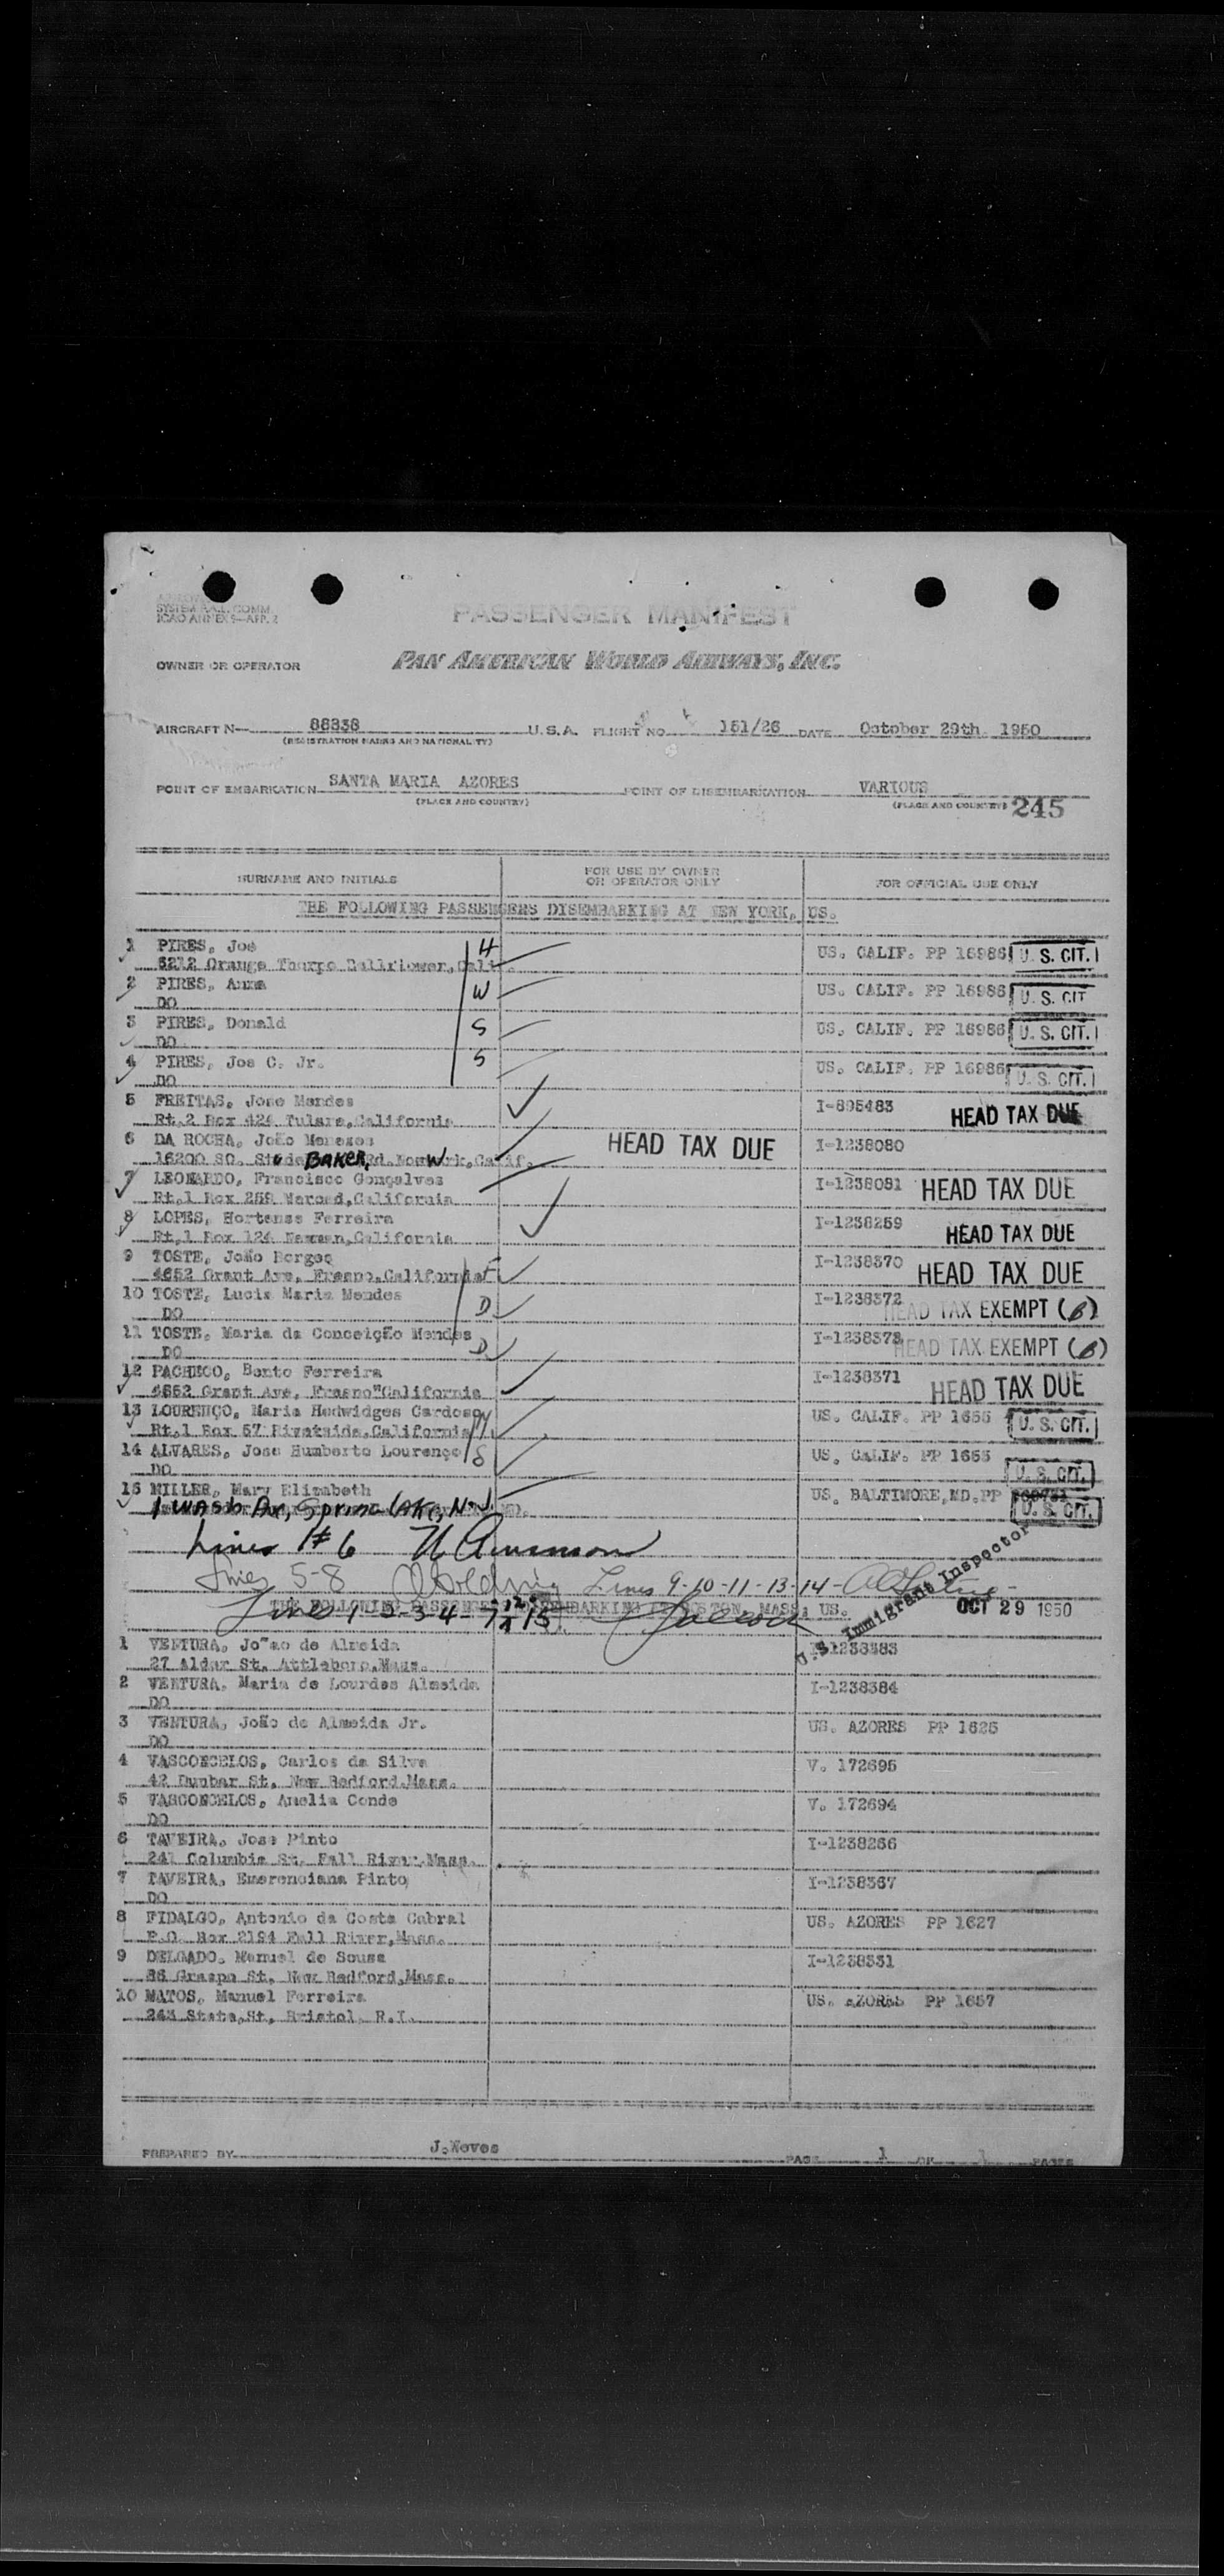 SYSTEM
COMM.
ICAO ANNEX 9—APP. 2
PASSENGER MANIFEST
OWNER OR OPERATOR PAN AMERICAN WORLD AIRWAYS, INC.
AIRCRAFT N— 88838 U.S.A. FLIGHT NO. 151/26 DATE October 29th. 1950
(REGISTRATION MARKS AND NATIONALITY)
POINT OF EMBARKATION SANTA MARIA AZORES POINT OF DISEMBARKATION VARIOUS
(PLACE AND COUNTRY) (PLACE AND COUNTRY) 245
SURNAME AND INITIALS FOR USE BY OWNER OR OPERATOR ONLY FOR OFFICIAL USE ONLY
THE FOLLOWING PASSENGERS DISEMBARKING AT NEW YORK, US.
1 PIRES, Joe H US. CALIF. PP 16986 U. S. CIT.
Orange Thorpe Calif.
2 PIRES, Anna W US. CALIF. PP 16986 U. S. CIT
DO
3 PIRES, Donald S US. CALIF. PP 16986 U. S. CIT.
DO
4 PIRES, Joe C. Jr. S US. CALIF. PP 16986 U. S. CIT.
DO
5 FREITAS, Jose Mendes I-895483 HEAD TAX DUE
Rt.2 Box 424 Tulare,California
6 DA ROCHA, João Menezes HEAD TAX DUE I-1238080
16200 SO. BAKER, Rd. W Calif.
7 LEONARDO, Francisco Gonçalves I-1238081 HEAD TAX DUE
Rt.1 Box 259 Merced,California
8 LOPES, Hortense Ferreira I-1238259 HEAD TAX DUE
Rt.1 Box 124 Newman,California
9 TOSTE, João Borges F I-1238370 HEAD TAX DUE
4652 Grant Ave, Fresno,California
10 TOSTE, Lucia Maria Mendes D I-1238372 HEAD TAX EXEMPT (B)
DO
11 TOSTE, Maria da Conceição Mendes D I-1238373 HEAD TAX EXEMPT (B)
DO
12 PACHECO, Bento Ferreira I-1238371 HEAD TAX DUE
4652 Grant Ave, Fresno"California
13 LOURENÇO, Maria Hedwidges Cardoso M US. CALIF. PP 1655 U. S. CIT.
Rt.1 Box 57 California
14 ALVARES, Jose Humberto Lourenço S US. CALIF. PP 1655 U. S. CIT.
DO
15 MILLER, Mary Elizabeth US. BALTIMORE,MD.PP U. S. CIT.
1 WASh Av, Spring LAKe, N.J.
Lines # 6
Lines 5-8 Lines 9-10-11-13-14-
THE FOLLOWING PASSENGERS DISEMBARKING AT BOSTON, MASS, US. OCT 29 1950
Lines 1-2-3-4-7-12-15
U.S. Immigrant Inspector
1 VENTURA, João de Almeida I-1238383
27 Alder St. Attleboro,Mass.
2 VENTURA, Maria de Lourdes Almeida I-1238384
DO
3 VENTURA, João de Almeida Jr. US. AZORES PP 1625
DO
4 VASCONCELOS, Carlos da Silva V. 172695
42 Dunbar St. New Bedford,Mass.
5 VASCONCELOS, Amelia Conde V. 172694
DO
6 TAVEIRA, Jose Pinto I-1238266
241 Columbia St. Fall River,Mass.
7 TAVEIRA, Emerenciana Pinto I-1238367
DO
8 FIDALGO, Antonio da Costa Cabral US. AZORES PP 1627
P.O. Box 2194 Fall River,Mass.
9 DELGADO, Manuel de Sousa I-1238331
St. New Bedford,Mass.
10 MATOS, Manuel Ferreira US. AZORES PP 1657
243 State,St. Bristol, R.I.
PREPARED BY J.Neves PAGE 1 OF 1 PAGES